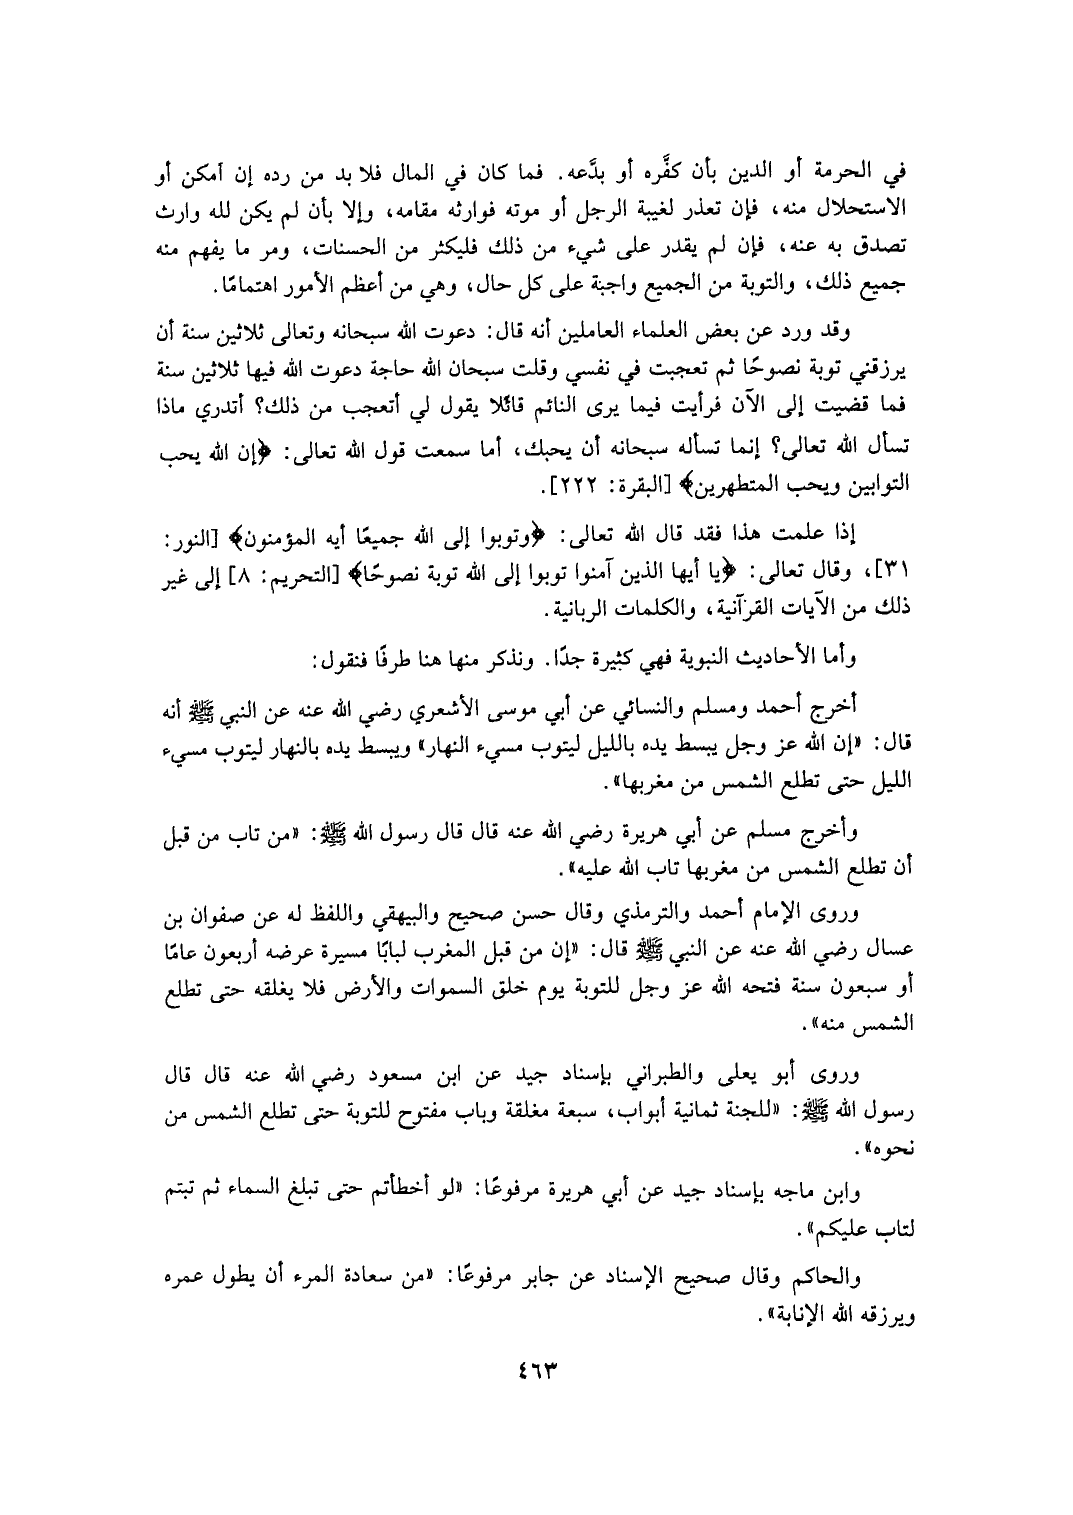 في الحرمة أو الدين بأن كفَّره أو بدَّعه. فما كان في المال فلا بد من رده إن أمكن أو
الاستحلال منه، فإن تعذر لغيبة الرجل أو موته فوارثه مقامه، وإلا بأن لم يكن لله وارث
تصدق به عنه، فإن لم يقدر على شيء من ذلك فليكثر من الحسنات، ومر ما يفهم منه
جميع ذلك، والتوبة من الجميع واجبة على كل حال، وهي من أعظم الأمور اهتمامًا.
وقد ورد عن بعض العلماء العاملين أنه قال: دعوت الله سبحانه وتعالى ثلاثين سنة أن
يرزقني توبة نصوحًا ثم تعجبت في نفسي وقلت سبحان الله حاجة دعوت الله فيها ثلاثين سنة
فما قضيت إلى الآن فرأيت فيما يرى النائم قائلا يقول لي أتعجب من ذلك؟ أتدري ماذا
تسأل الله تعالى؟ إنما تسأله سبحانه أن يحبك، أما سمعت قول الله تعالى: ﴿إن الله يحب
التوابين ويحب المتطهرين﴾ [البقرة: ٢٢٢].
إذا علمت هذا فقد قال الله تعالى: ﴿وتوبوا إلى الله جميعًا أيه المؤمنون﴾ [النور:
٣١]، وقال تعالى: ﴿يا أيها الذين آمنوا توبوا إلى الله توبة نصوحًا﴾ [التحريم: ٨] إلى غير
ذلك من الآيات القرآنية، والكلمات الربانية.
وأما الأحاديث النبوية فهي كثيرة جدًا. ونذكر منها هنا طرفًا فنقول:
أخرج أحمد ومسلم والنسائي عن أبي موسى الأشعري رضي الله عنه عن النبي ﷺ أنه
قال: «إن الله عز وجل يبسط يده بالليل ليتوب مسيء النهار» ويبسط يده بالنهار ليتوب مسيء
الليل حتى تطلع الشمس من مغربها».
وأخرج مسلم عن أبي هريرة رضي الله عنه قال قال رسول الله ﷺ: «من تاب من قبل
أن تطلع الشمس من مغربها تاب الله عليه».
وروى الإمام أحمد والترمذي وقال حسن صحيح والبيهقي واللفظ له عن صفوان بن
عسال رضي الله عنه عن النبي ﷺ قال: «إن من قبل المغرب لبابًا مسيرة عرضه أربعون عامًا
أو سبعون سنة فتحه الله عز وجل للتوبة يوم خلق السموات والأرض فلا يغلقه حتى تطلع
الشمس منه».
وروى أبو يعلى والطبراني بإسناد جيد عن ابن مسعود رضي الله عنه قال قال
رسول الله ﷺ: «للجنة ثمانية أبواب، سبعة مغلقة وباب مفتوح للتوبة حتى تطلع الشمس من
نحوه».
وابن ماجه بإسناد جيد عن أبي هريرة مرفوعًا: «لو أخطأتم حتى تبلغ السماء ثم تبتم
لتاب عليكم».
والحاكم وقال صحيح الإسناد عن جابر مرفوعًا: «من سعادة المرء أن يطول عمره
ويرزقه الله الإنابة».
٤٦٣